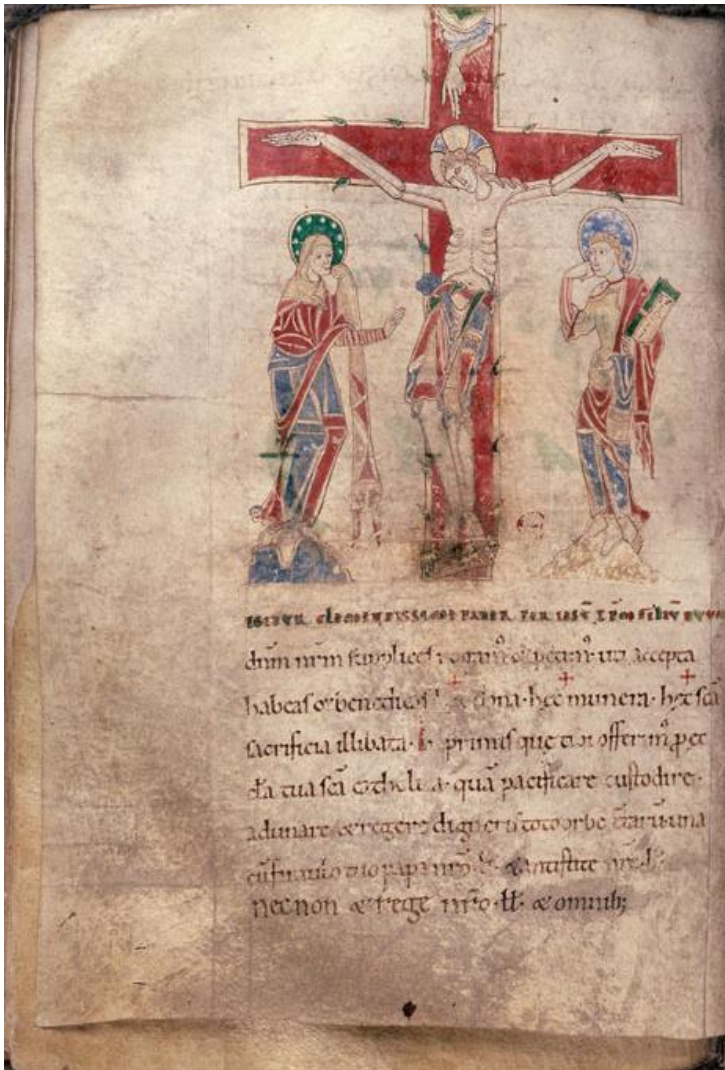 IGITUR CLEMENTISSIME PATER PER IESŪ XP̄M FILIŪ TUUM
dūm nr̄m supplices rogam᾽ & petim᾽ uti accepta
habeas & benedicas hęc dona · hęc munera · hęc sc̄a
sacrificia illibata · primis que tibi offerim᾽ p
tua sc̄a catholica · quā pacificare custodire ·
adunare & regere digneris toto orbe t̄rarū una
cū famulo tuo papa nr̄o · & antistite nr̄o
nec non & rege nr̄o · ił̄ł · & omnib;